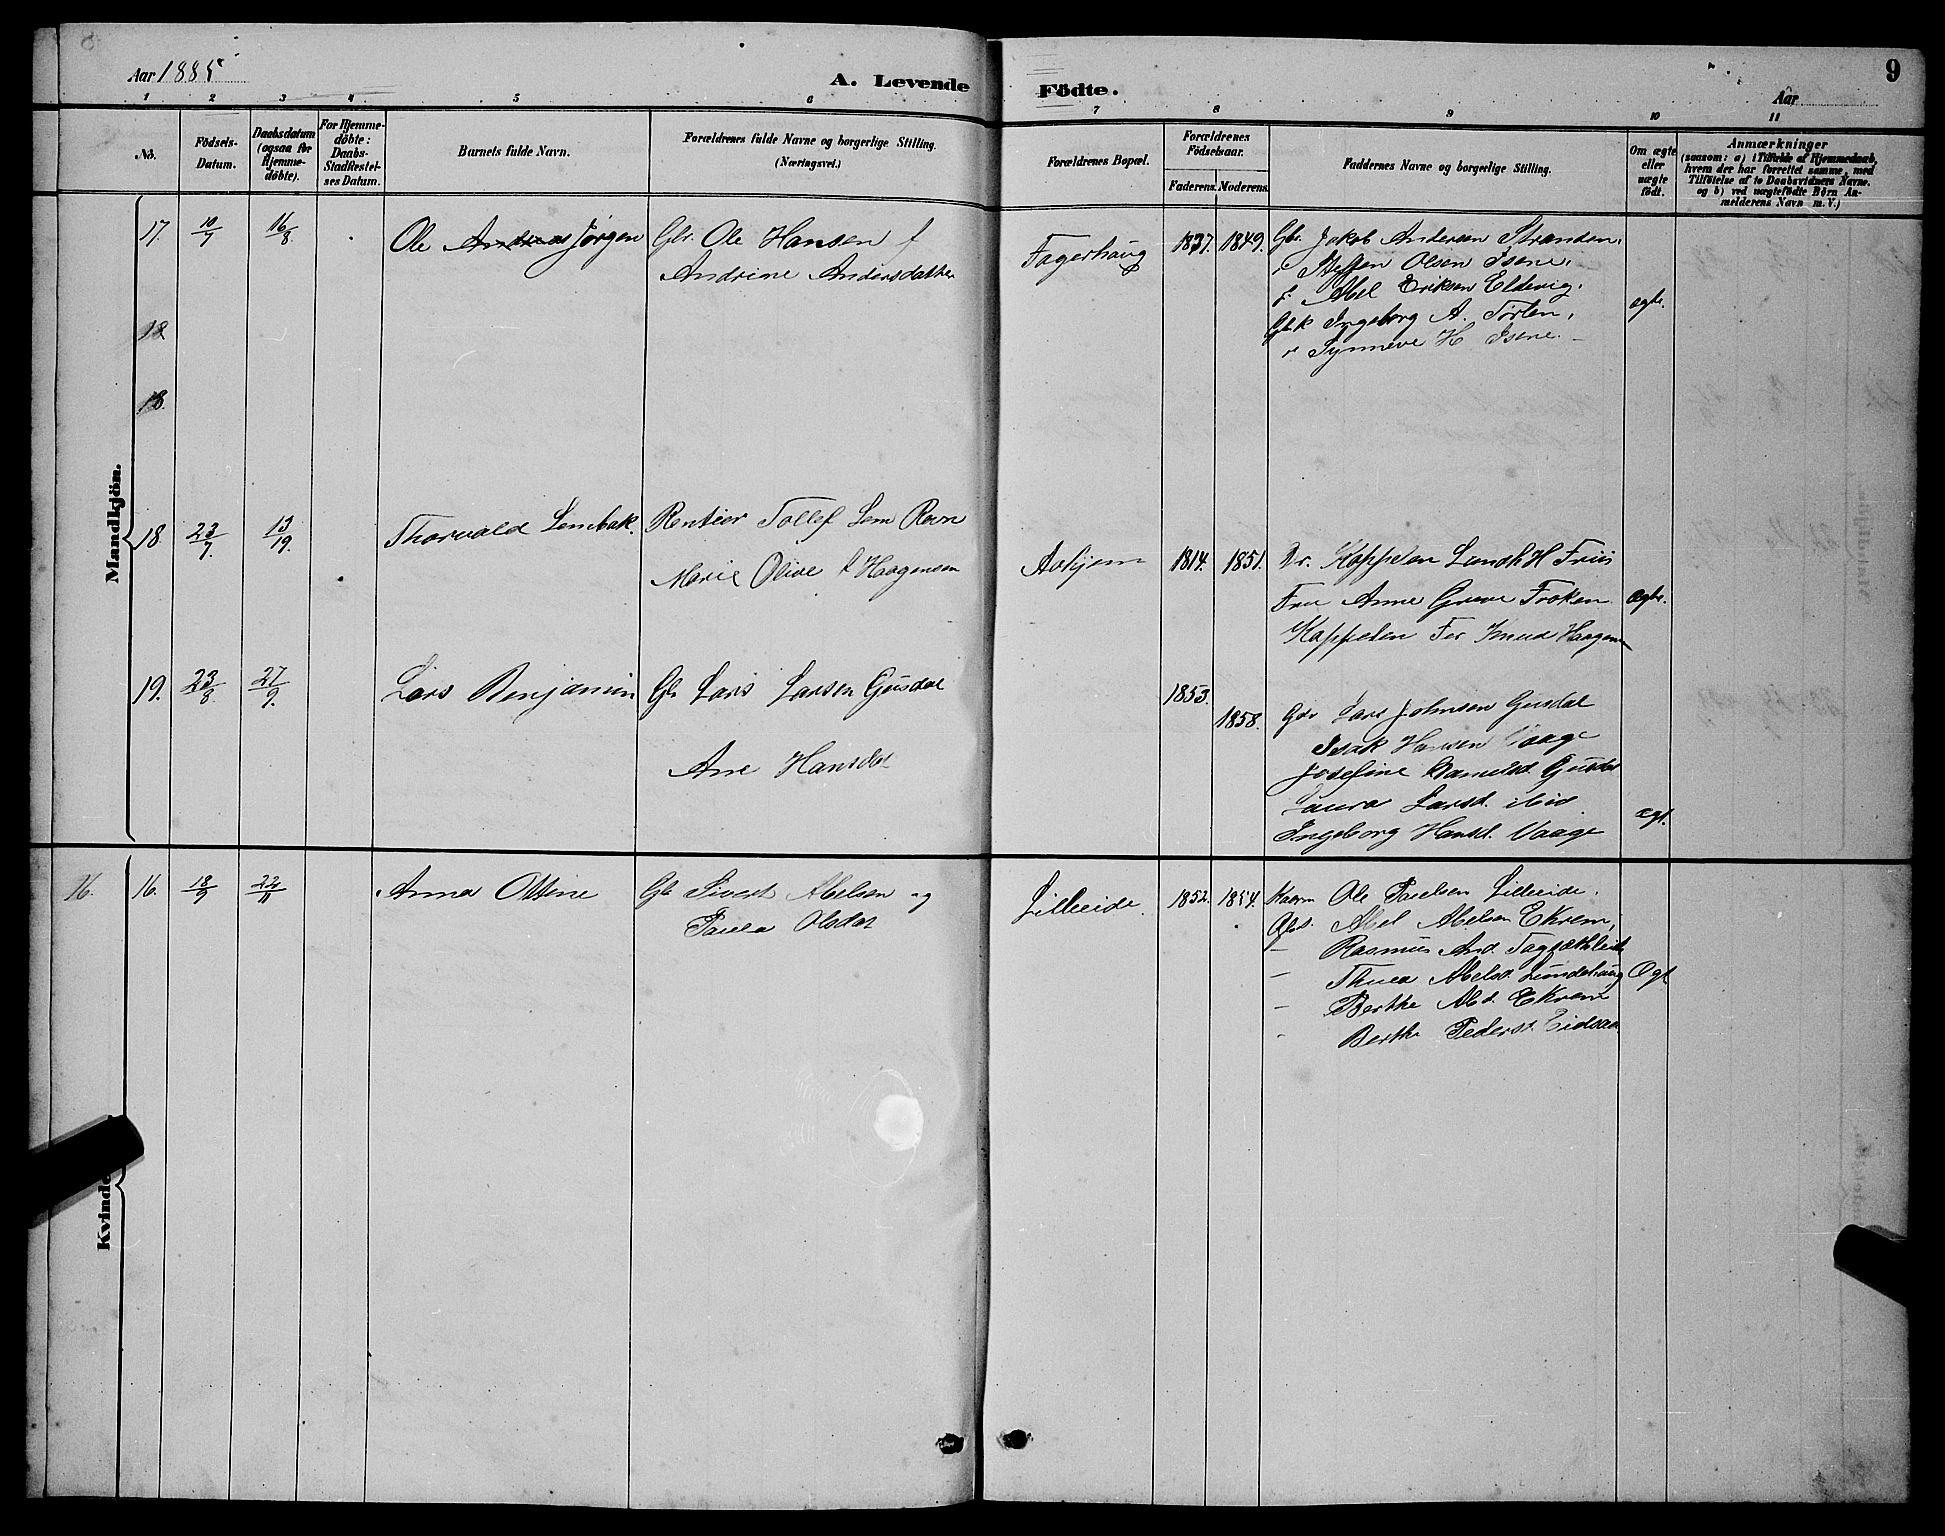 Aar 1885
A. Levende
Födte.
9
Aar
1 2 3 4 5 6 7 8 9 10 11
No.
Födsels-
Datum.
Daabsdatum
(ogsaa for
Hjemme-
döbte).
For Hjemme-
döbte:
Daabs-
Stadfæstel-
ses Datum.
Barnets fulde Navn.
Forældrenes fulde Navne og borgerlige Stilling.
(Næringsvei.)
Forældrenes Bopæl.
Forældrenes
Födselsaar.
Faderens. Moderens.
Faddernes Navne og borgerlige Stilling.
Om ægte
eller
uægte
födt.
Anmærkninger
(saasom: a) i Tilfælde af Hjemmedaab,
hvem der har forrettet samme, med
Tilföielse af to Daabsvidners Navne,
og b) ved uægtefödte Börn An-
melderens Navn m. V.)
Mandkjön.
17. 10/7 16/8 Ole Andreas Jørgen
Gbr. Ole Hansen f
Andrine Andersdatter
Fagerhaug 1837. 1849.
Gbr. Jakob Andersen Stranden,
" Steffen Olsen Isene,
f. Abel Eriksen Eldevig,
Gbk Ingeborg A. Førten,
" Synneve H Isene.
ægte.
18
18.
18 23/7. 13/19. Thorvald Lembak.
Rentier Tollef Lem Ravn
Marie Olive f Haagensen
Aahjem 1814. 1851.
Dr. Kappelen Lundh H Friis
Fru Anne Greve Frøken
Kappelen For Knud Haagensen
ægte.
19. 23/8 27/9. Lars Benjamin
Gb Lars Larsen Gusdal
Ane Hansdat
1853.
1858.
Gdr Lars Johnsen Gusdal
Isak Hansen Vaage
Josefine Danielsd. Gusdal
Laura Larsd. ibid
Ingeborg Hansd. Vaage
ægt.
Kvinde
16. 16. 18/9 22/11 Anna Oltine
Gb. Sivert Abelsen og
Paula Olsdat
Lilleeide. 1852. 1854.
Kaarm Ole Paulsen Lilleeide.
Gbr. Abel Abelsen Ekrem,
- Rasmus And.
- Thuea Abelsd. Lundehaug
- Berthe Abd. Ekrem
- Berthe Pedersd. Eidsaa
Ægt